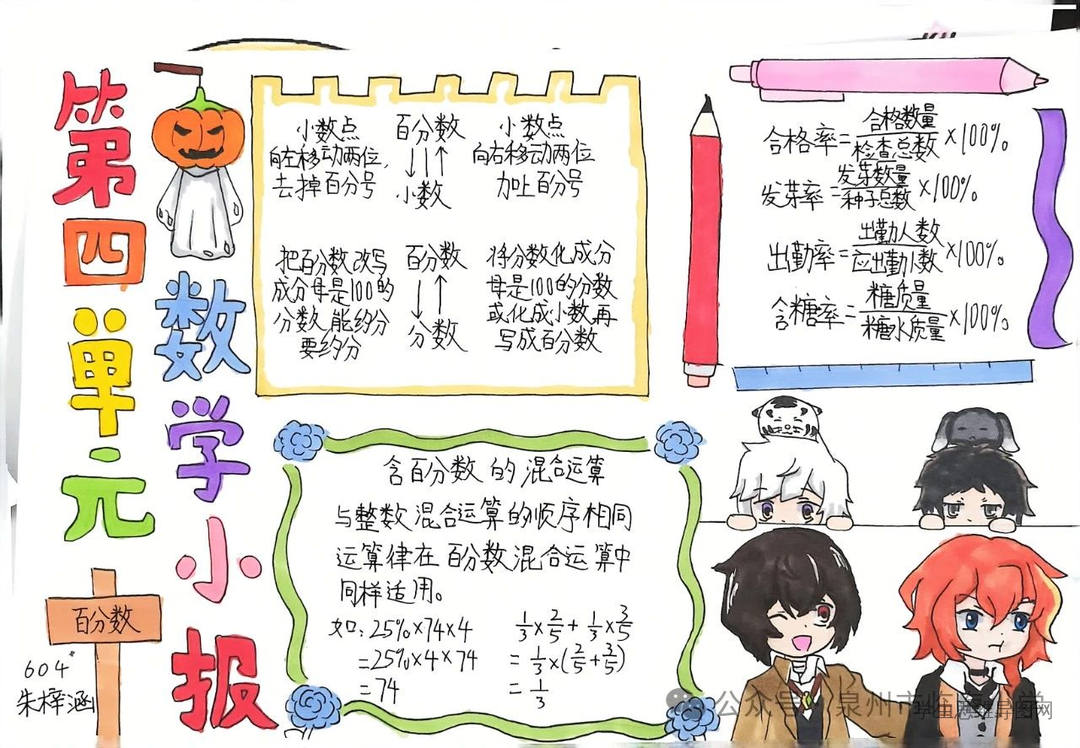 第四单元
数学小报
百分数
604
朱梓涵
小数点
向左移动两位,
去掉百分号
百分数
小数
小数点
向右移动两位
加上百分号
把百分数改写
成分母是100的
分数,能约分
要约分
百分数
分数
将分数化成分
母是100的分数
或化成小数,再
写成百分数
合格率=合格数量/检查总数×100%
发芽率=发芽数量/种子总数×100%
出勤率=出勤人数/应出勤人数×100%
含糖率=糖质量/糖水质量×100%
含百分数的混合运算
与整数混合运算的顺序相同
运算律在百分数混合运算中
同样适用。
如:25%×74×4
=25%×4×74
=74
1/3×2/5+1/3×3/5
=1/3×(2/5+3/5)
=1/3
公众号
泉州市